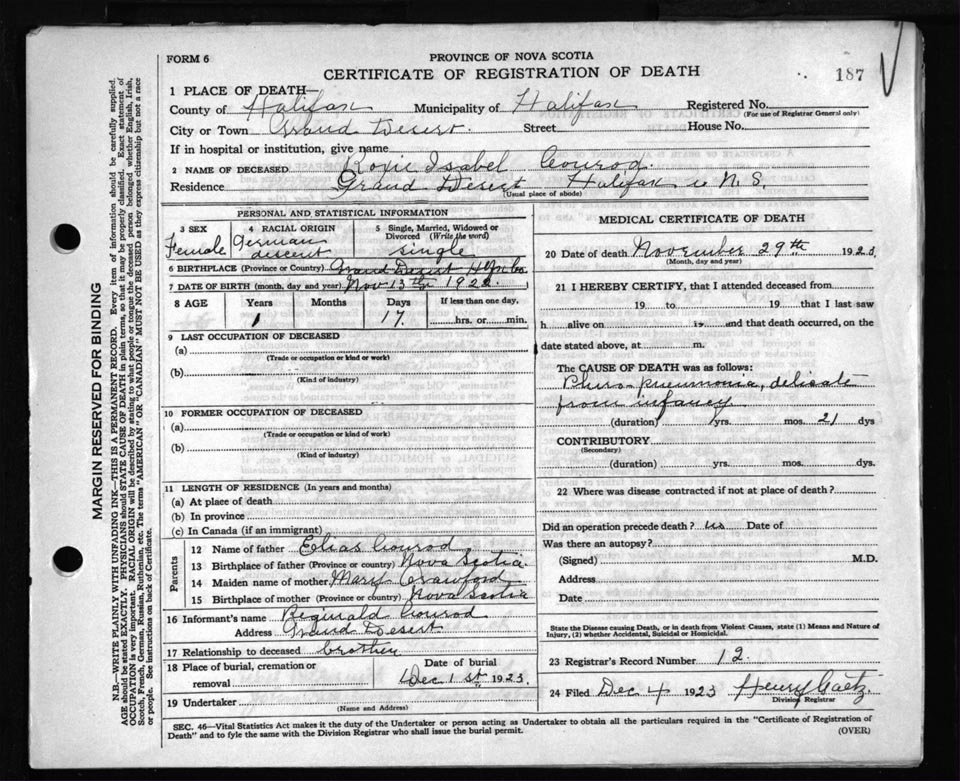 FORM 6
PROVINCE OF NOVA SCOTIA
CERTIFICATE OF REGISTRATION OF DEATH
187
1 PLACE OF DEATH—
County of Halifax Municipality of Halifax Registered No.
(For use of Registrar General only)
City or Town Grand Desert Street House No.
If in hospital or institution, give name
2 NAME OF DECEASED Roxie Isabel Conrod.
Residence Grand Desert Halifax Co N.S.
(Usual place of abode)
PERSONAL AND STATISTICAL INFORMATION
3 SEX
Female
4 RACIAL ORIGIN
German descent
5 Single, Married, Widowed or Divorced (Write the word)
single
6 BIRTHPLACE (Province or Country) Grand Desert Hfx Co.
7 DATE OF BIRTH (month, day and year) Nov 13th 1922.
8 AGE
Years Months Days If less than one day.
1 17. hrs. or min.
9 LAST OCCUPATION OF DECEASED
(a)
(Trade or occupation or kind of work)
(b)
(Kind of industry)
10 FORMER OCCUPATION OF DECEASED
(a)
(Trade or occupation or kind of work)
(b)
(Kind of industry)
11 LENGTH OF RESIDENCE (In years and months)
(a) At place of death
(b) In province
(c) In Canada (if an immigrant)
Parents
12 Name of father Elias Conrod
13 Birthplace of father (Province or Country) Nova Scotia
14 Maiden name of mother Mary Crawford
15 Birthplace of mother (Province or country) Nova Scotia
16 Informant's name Reginald Conrod
Address Grand Desert
17 Relationship to deceased brother
18 Place of burial, cremation or removal
Date of burial
Dec 1st 1923.
19 Undertaker
(Name and Address)
MEDICAL CERTIFICATE OF DEATH
20 Date of death November 29th 1923
(Month, day and year)
21 I HEREBY CERTIFY, that I attended deceased from
19 to 19 that I last saw
h alive on 19 and that death occurred, on the
date stated above, at m.
The CAUSE OF DEATH was as follows:
pneumonia, delicate
from infancy
(duration) yrs. mos. 21 dys
CONTRIBUTORY
(Secondary)
(duration) yrs. mos. dys.
22 Where was disease contracted if not at place of death?
Did an operation precede death? no Date of
Was there an autopsy?
(Signed) M.D.
Address
Date
State the Disease causing Death, or in death from Violent Causes, state (1) Means and Nature of
Injury, (2) whether Accidental, Suicidal or Homicidal.
23 Registrar's Record Number 12.
24 Filed Dec 4 1923 Henry Gaetz.
Division Registrar
SEC. 46—Vital Statistics Act makes it the duty of the Undertaker or person acting as Undertaker to obtain all the particulars required in the "Certificate of Registration of
Death" and to fyle the same with the Division Registrar who shall issue the burial permit.
(OVER)
MARGIN RESERVED FOR BINDING
N.B.—WRITE PLAINLY WITH UNFADING INK—THIS IS A PERMANENT RECORD. Every item of information should be carefully supplied.
AGE should be stated EXACTLY. PHYSICIANS should STATE CAUSE OF DEATH in plain terms, so that it may be properly classified. Exact statement of
OCCUPATION is very important. RACIAL ORIGIN will be described by stating to what people or tongue the deceased person belonged whether English, Irish,
Scotch, French, German, Russian, Ruthenian, etc. The terms "AMERICAN" OR "CANADIAN" MUST NOT BE USED as they express citizenship but not a race
or people. See instructions on back of Certificate.